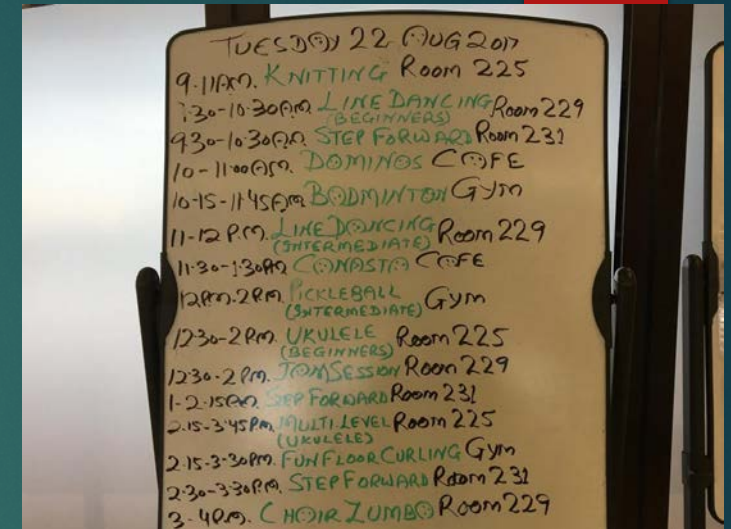 TUESDAY 22 AUG 2017
9-11AM. KNITTING Room 225
9:30-10:30AM. LINE DANCING Room 229
(BEGINNERS)
9:30-10:30AM. STEP FORWARD Room 231
10-11:00AM. DOMINOS CAFE
10-15-11:45AM. BADMINTON Gym
11-12 P.M. LINE DANCING Room 229
(INTERMEDIATE)
11:30-1:30PM CANASTA CAFE
12PM-2PM. PICKLEBALL Gym
(INTERMEDIATE)
12:30-2PM. UKULELE Room 225
(BEGINNERS)
12:30-2PM. JAM SESSION Room 229
1-2-15PM. STEP FORWARD Room 231
2-15-3:45P.M. MULTI LEVEL Room 225
(UKULELE)
2:15-3-30PM. FUN FLOOR CURLING Gym
2-30-3:30PM. STEP FORWARD Room 231
3-4P.M. CHAIR ZUMBA Room 229